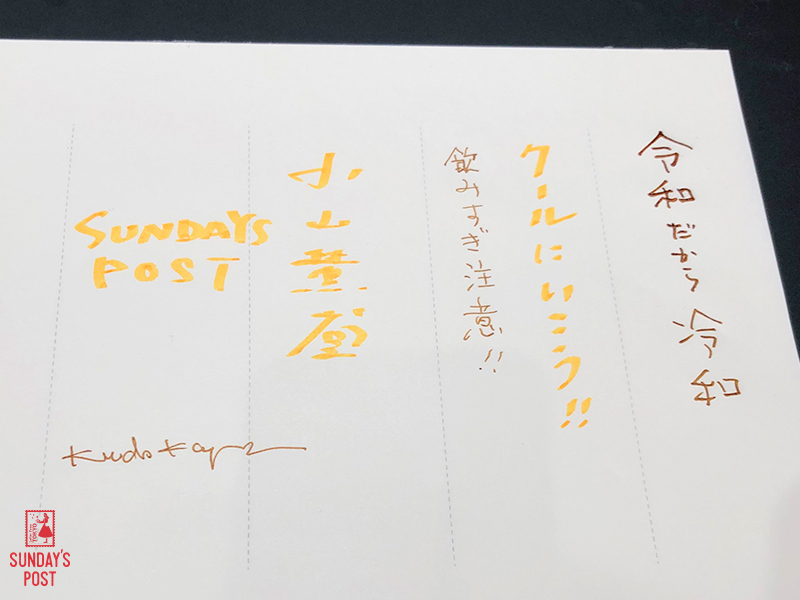 令和だから冷和
クールにいこう!!
飲みすぎ注意!!
小山薫堂
SUNDAYS
POST
SUNDAY'S
POST